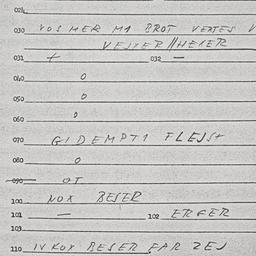 024
030 VOS MER M1 BROT VEXTES V
VESPER//HEXER
031 + 032 —
040 O
050 O
060 O
070 GIDEMPT1 FLEJS+
080 O
090 OT
100 NOX BESER
101 — 102 ERGER
103
110 IV KOX BESER FAR ZEJ